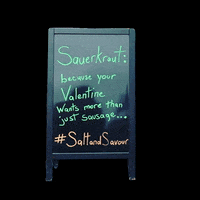 Sauerkraut:
because your
Valentine
Wants more than
just sausage...
#SaltandSavour